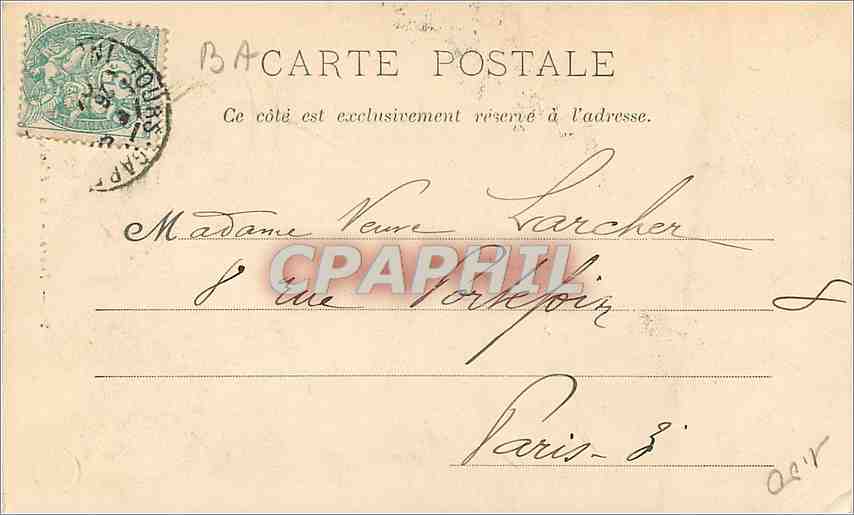 BA
CARTE POSTALE
TOURS-GARE
Ce côté est exclusivement réservé à l'adresse.
Madame Veuve Larcher
CPAPHIL
8 rue Portefoin 8
Paris - 3e